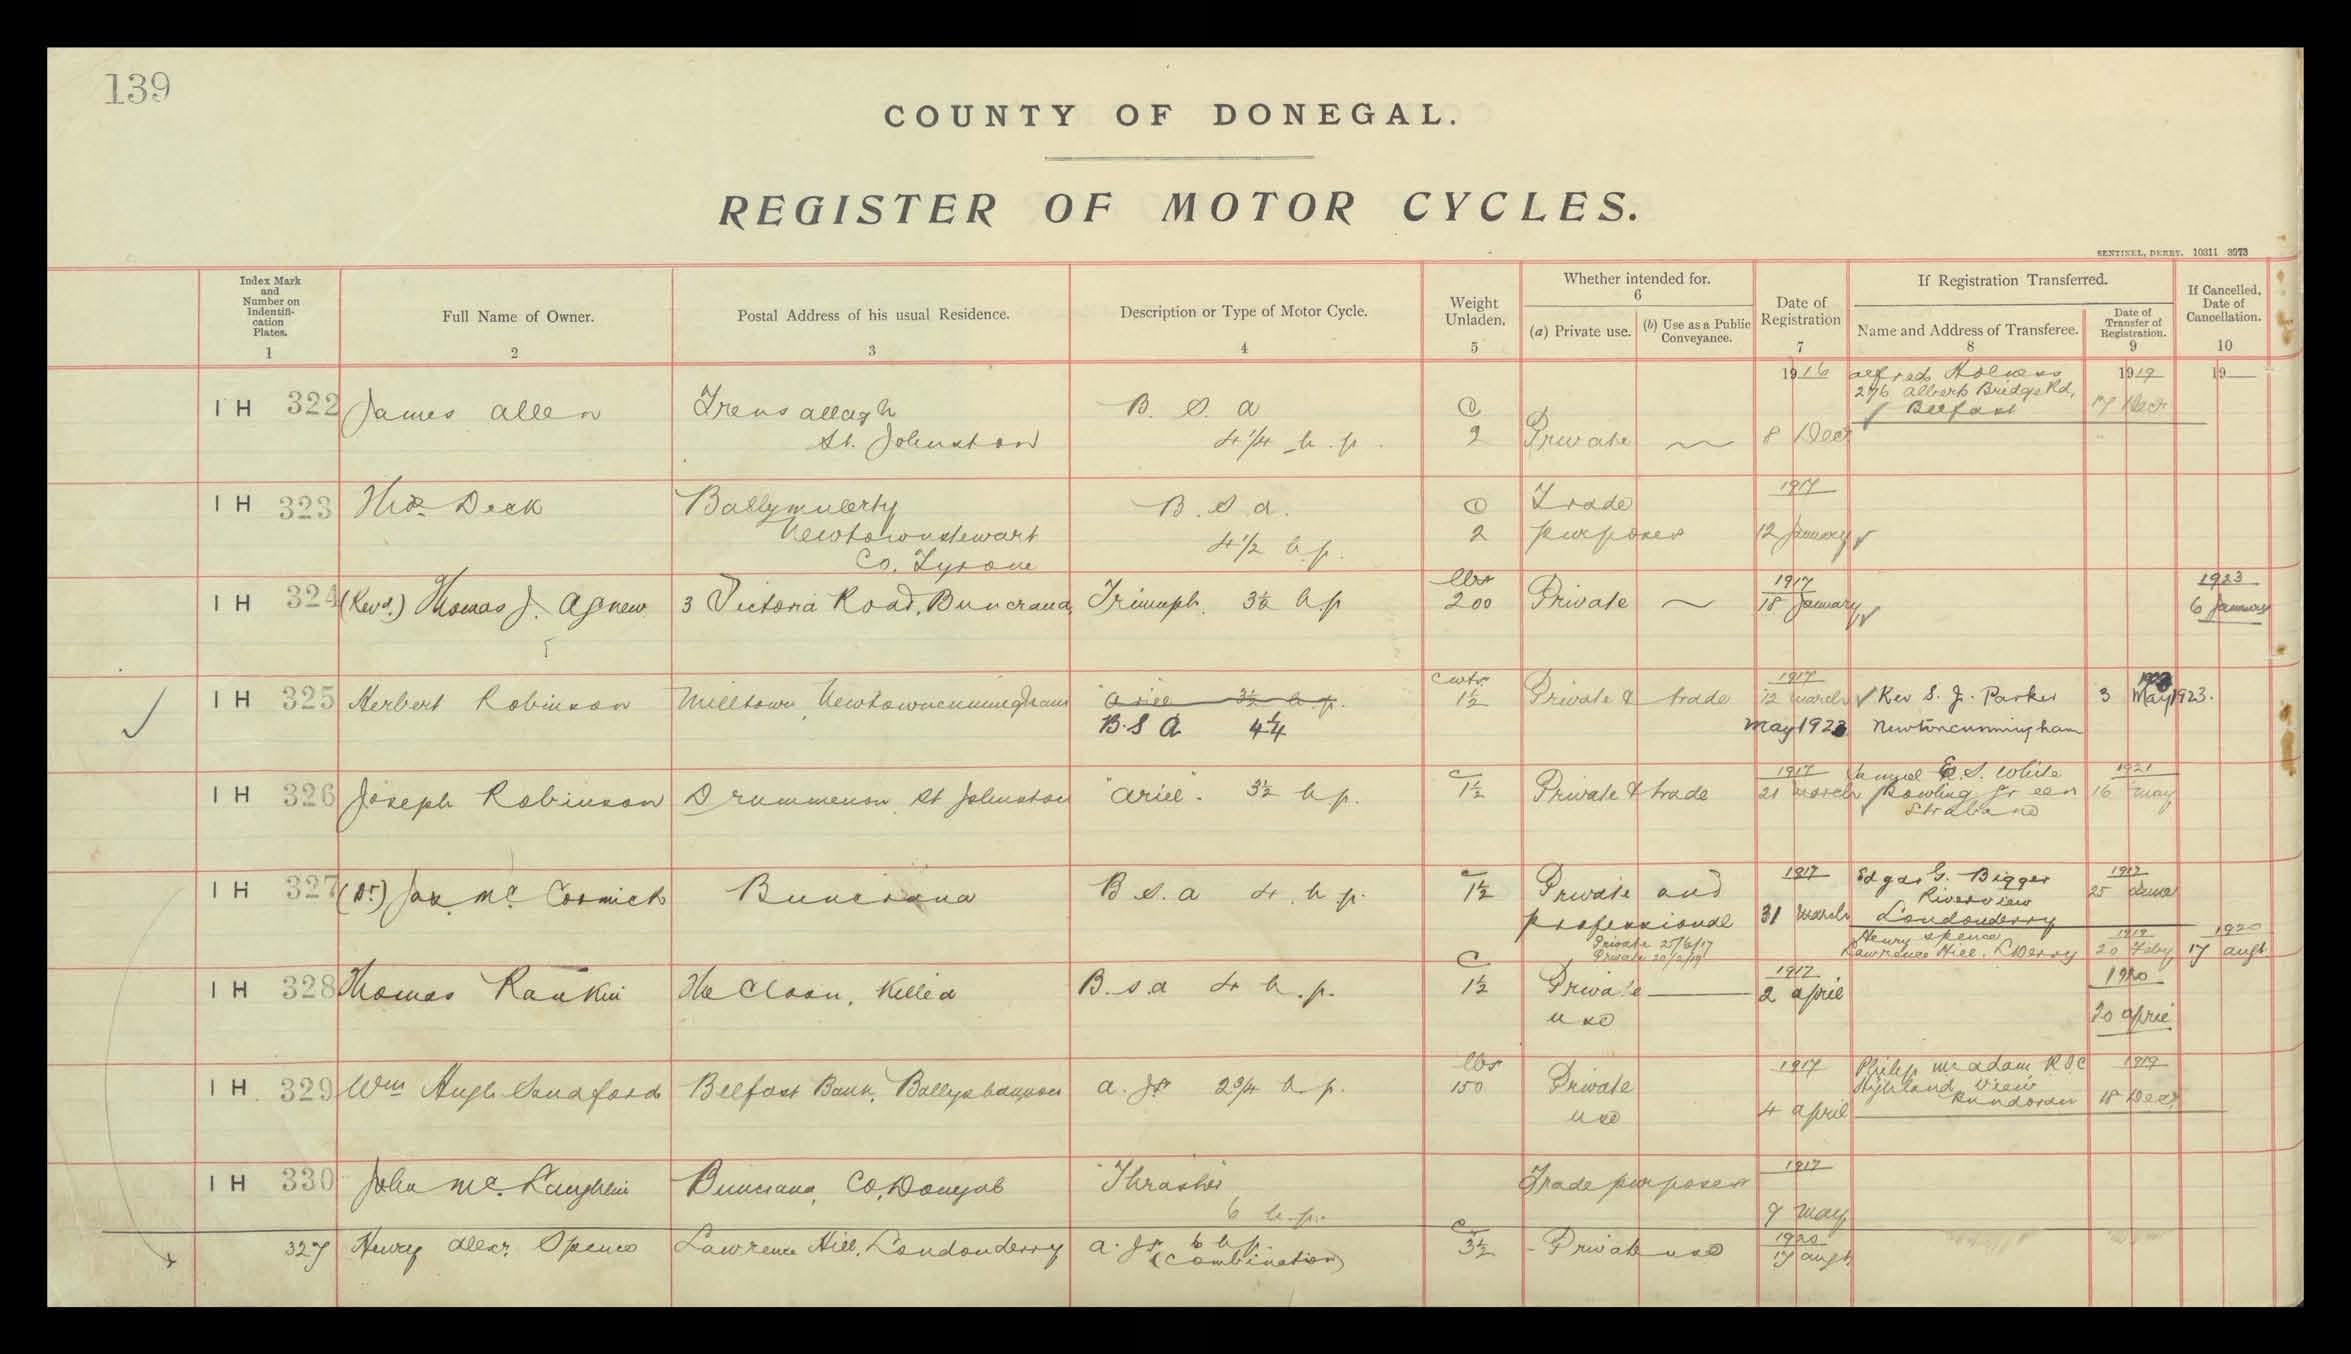 139
COUNTY OF DONEGAL.
REGISTER OF MOTOR CYCLES.
SENTINEL, DERRY. 10311 3973
Index Mark and Number on Indentifi-cation Plates. 1
Full Name of Owner. 2
Postal Address of his usual Residence. 3
Description or Type of Motor Cycle. 4
Weight Unladen. 5
Whether intended for. 6
(a) Private use.
(b) Use as a Public Conveyance.
Date of Registration 7
If Registration Transferred.
Name and Address of Transferee. 8
Date of Transfer of Registration. 9
If Cancelled, Date of Cancellation. 10
1916 Alfred Holness 1919 19
276 Albert Bridge Rd,
IH 322 James Allen Trensallagh B. S. A C Belfast 17 Decr
St. Johnston 4 1/4 h.p. 2 Private 8 Decr
1917
IH 323 Thos Deck Ballymulerty B.S.A. C Trade
Newtownstewart 4 1/2 h.p. 2 purposes 12 January
Co. Tyrone
lbs 1917 1923
IH 324 (Revd.) Thomas J. Agnew 3 Victoria Road, Buncrana Triumph. 3½ h.p 200 Private 18 January 6 January
cwts 1917
IH 325 Herbert Robinson Milltown, Newtowncunningham "Ariel 3½ h.p. 1½ Private & trade 12 March Rev S. J. Parker 3 May 1923.
B.S A 4¼ May 1923 Newtoncunningham
c 1917 Samuel E. S. White 1921
IH 326 Joseph Robinson Drummenon St Johnston "Ariel". 3½ h.p. 1½ Private & trade 21 March Bowling Green 16 May
Strabane
c 1917 Edgar G. Bigger 1917
IH 327 (Dr.) Jas. Mc Cormick Buncrana B S. A 4. h.p. 1½ Private and Riverview 25 June
professional 31 March Londonderry
Private 25/6/17 Henry Spence 1919 1920
Private 20/2/19 Lawrence Hill. L'Derry 20 Feby 17 Augt
C 1917 1920
IH 328 Thomas Rankin The Cloon, Killea B.S.A 4 h.p. 1½ Private 2 April
use 20 April
lbs 1917 Philip McAdam R.I.C 1919
IH 329 Wm Hugh Sandford Belfast Bank, Ballyshannon A.JS 2¾ h.p. 150 Private Highland View
use 4 April Bundoran 18 Decr
1917
IH 330 John Mc. Laughlin Buncrana, Co. Donegal "Thrasher Trade purposes
6 h.p. 7 May
c 1920
327 Henry Alexr. Spence Lawrence Hill, Londonderry A.JS 6 h.p. 3½ Private use 17 Augt
(Combination)